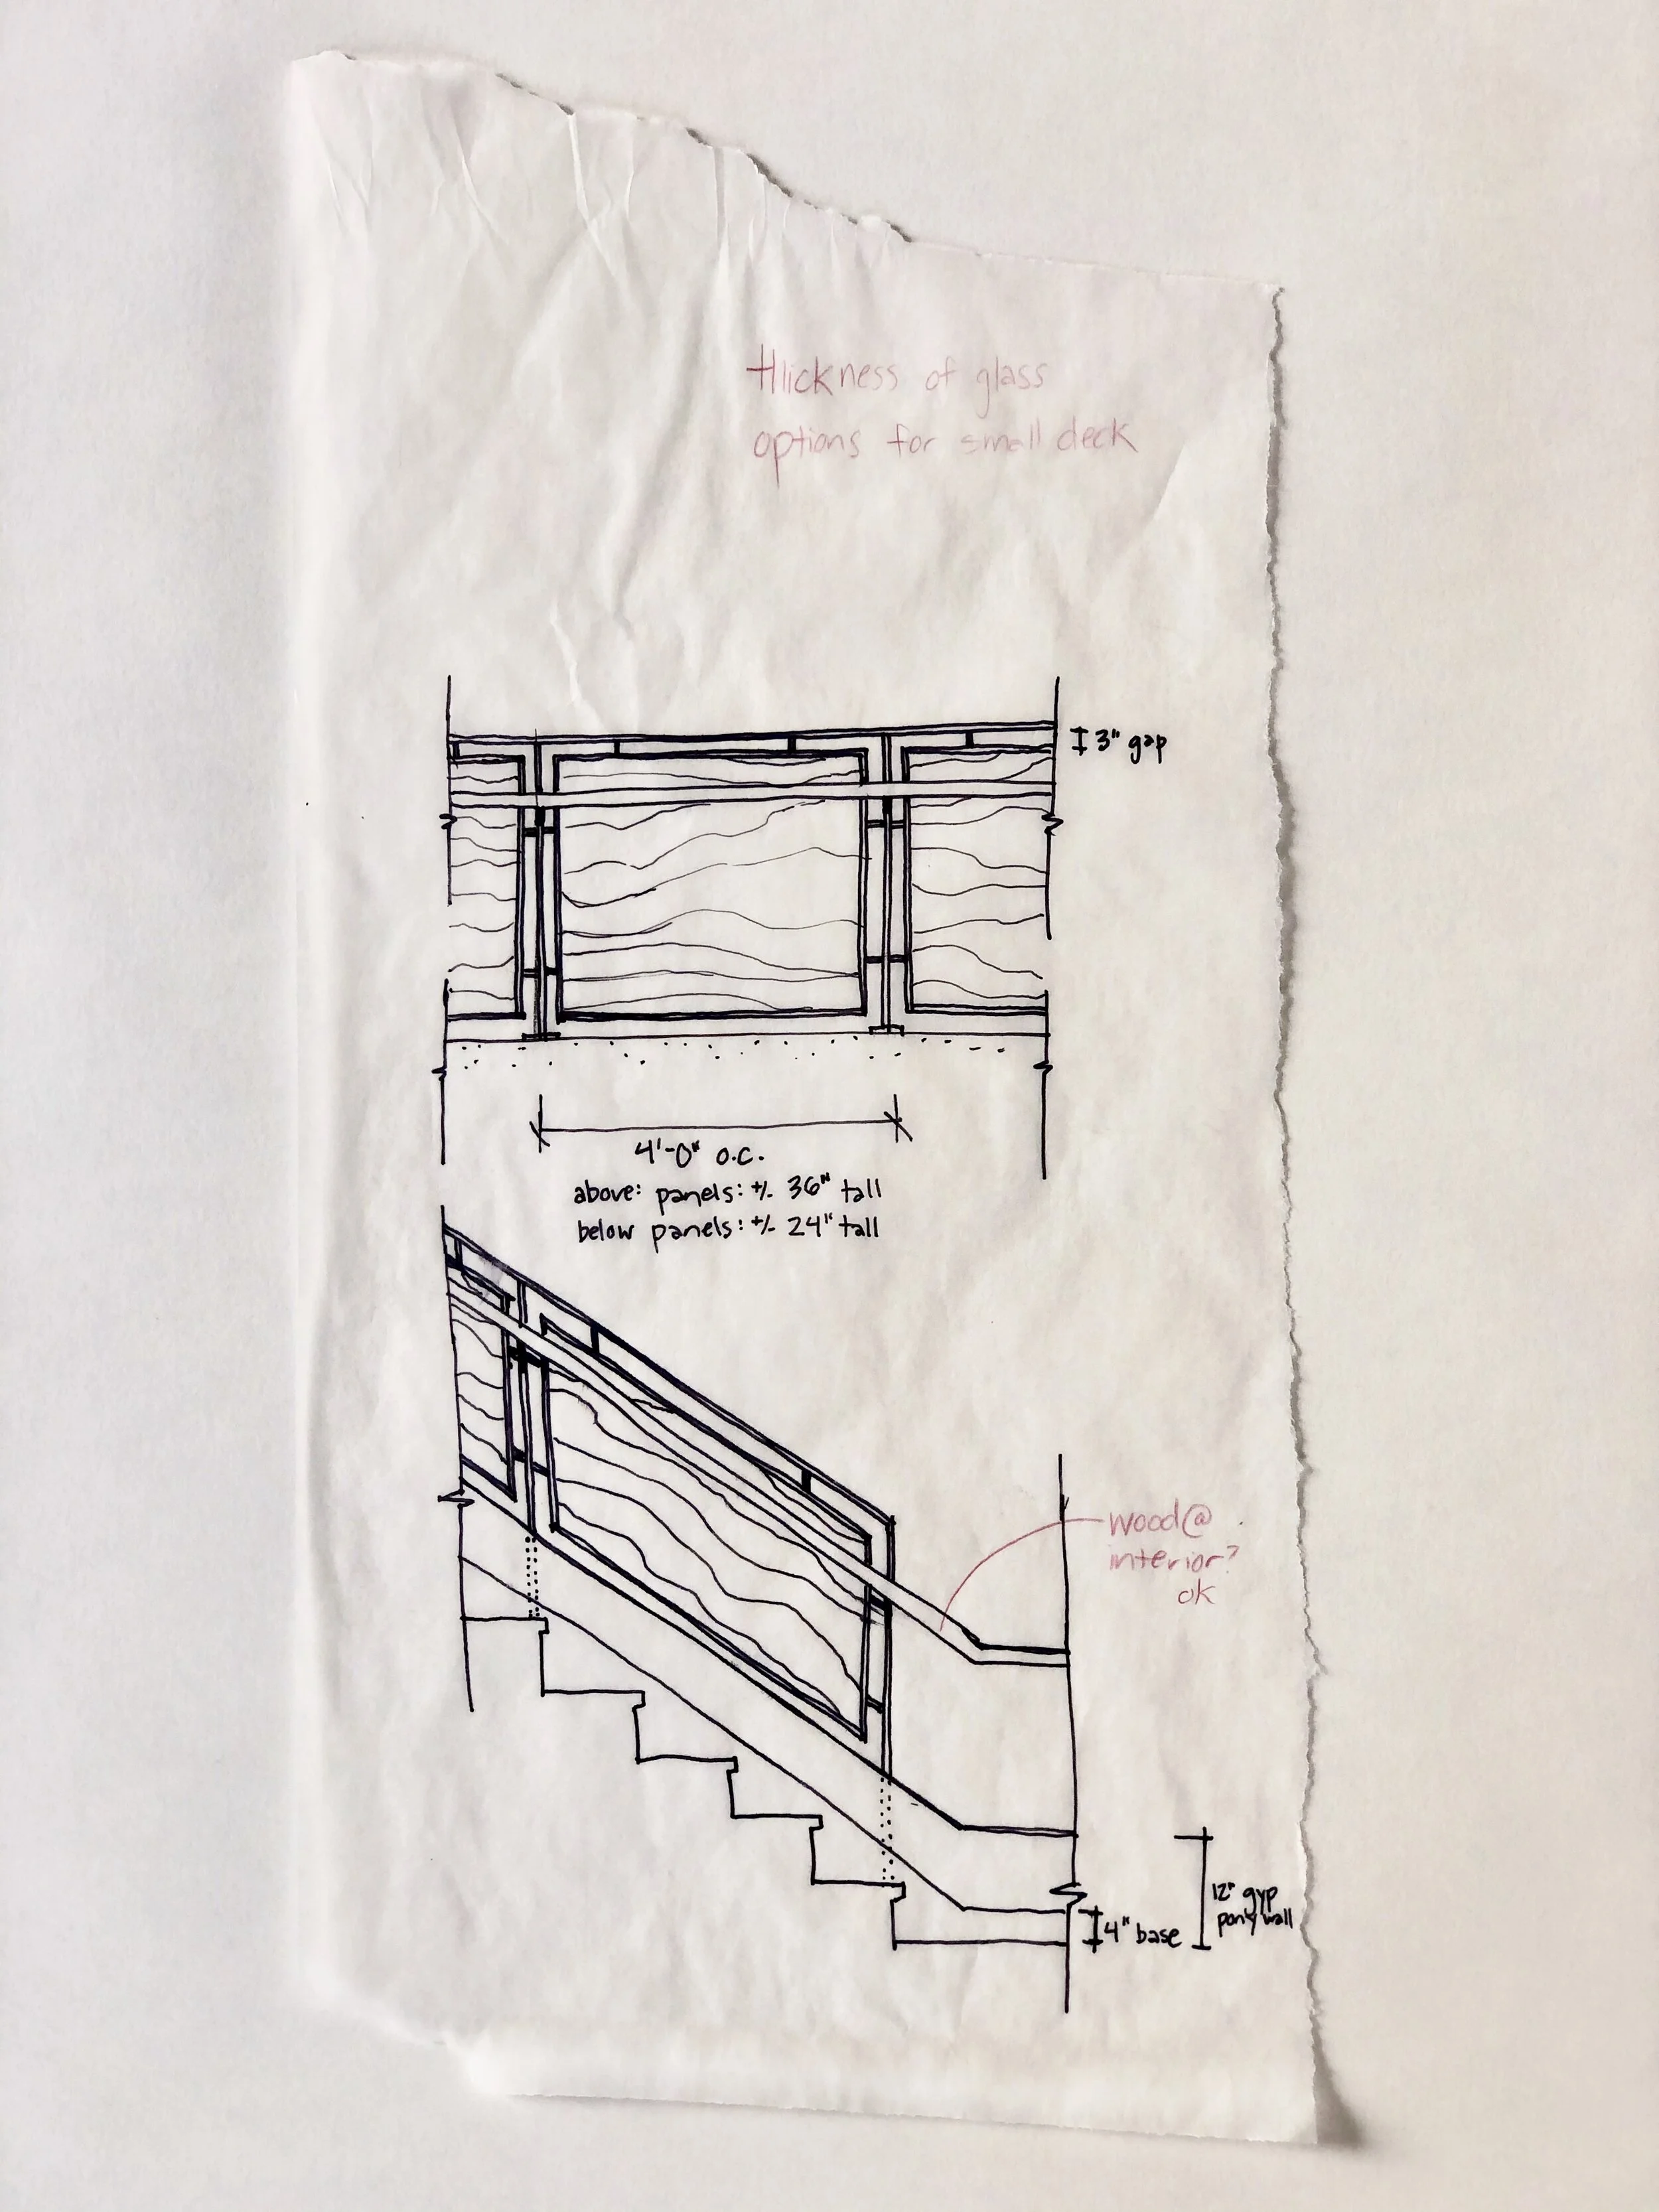 thickness of glass
options for small deck
3" gap
4'-0" o.c.
above: panels: +/- 36" tall
below panels: +/- 24" tall
wood @
interior?
ok
12" gyp
pony wall
4" base